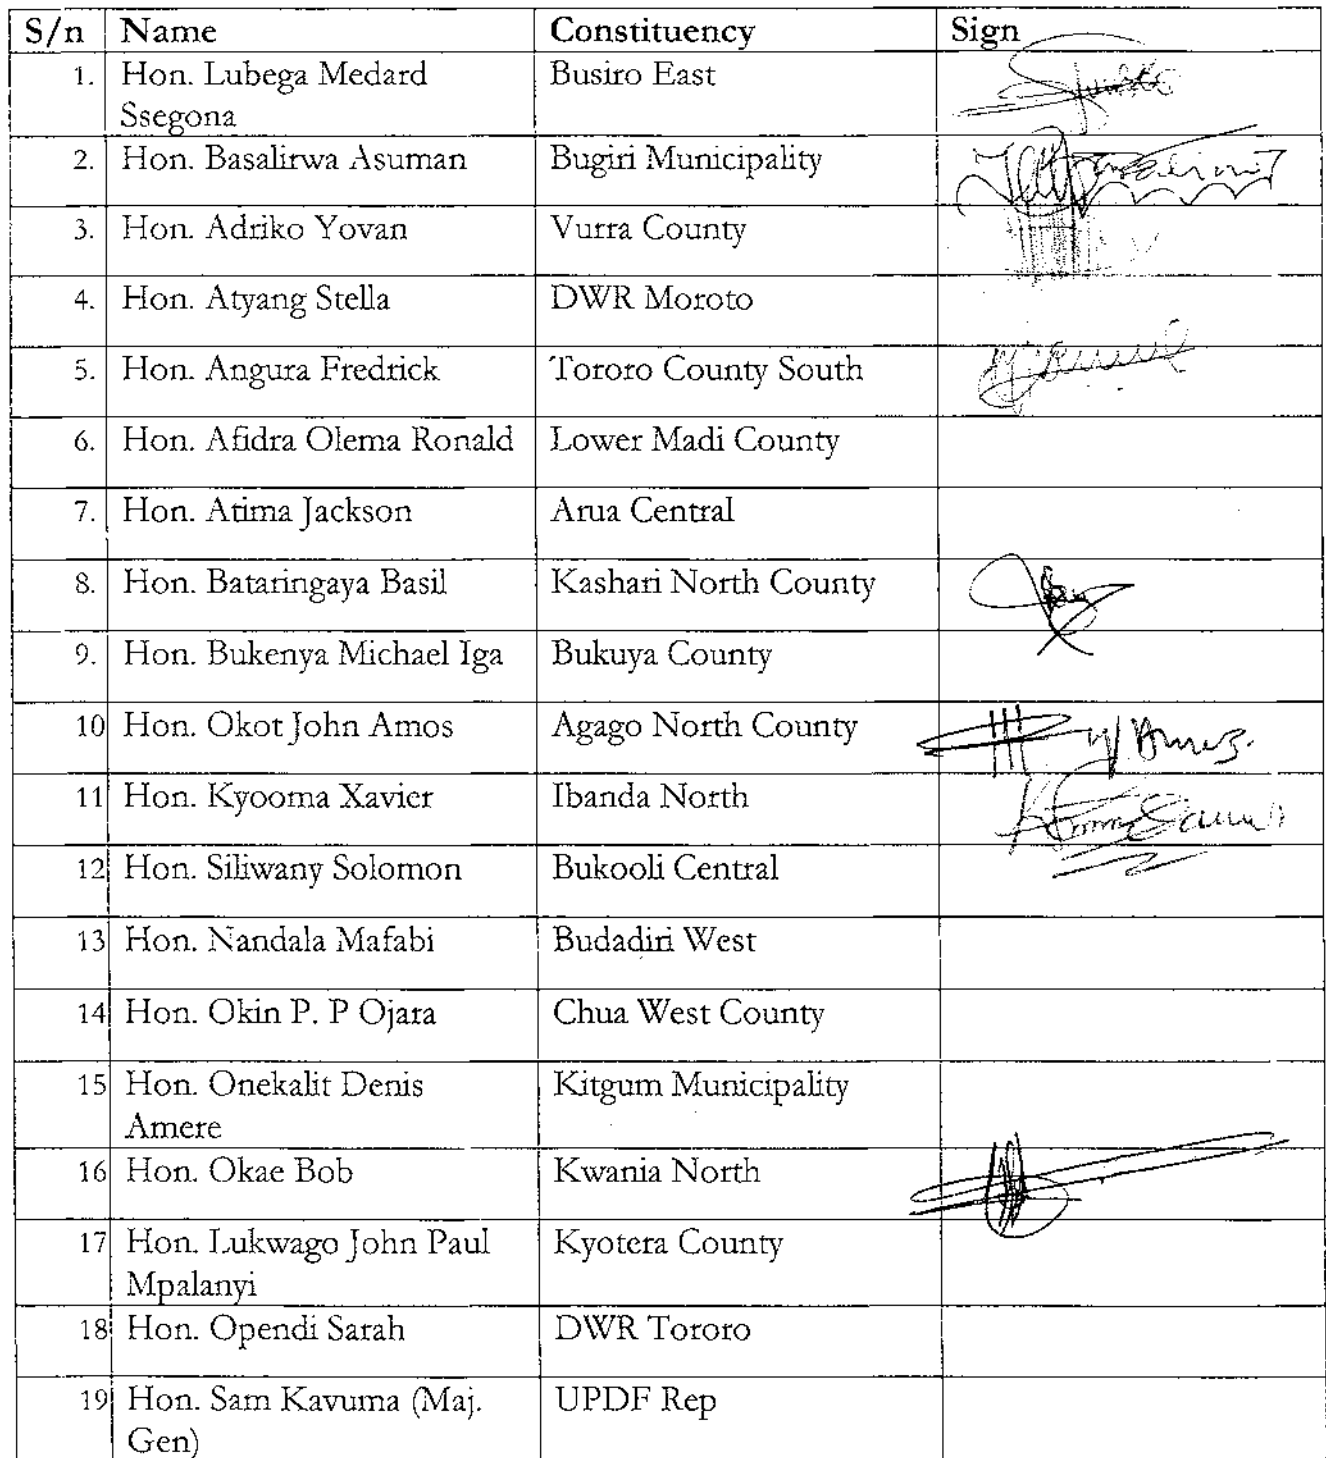 S/n Name Constituency Sign
1. Hon. Lubega Medard Busiro East
Ssegona
2. Hon. Basalirwa Asuman Bugiri Municipality
3. Hon. Adriko Yovan Vurra County
4. Hon. Atyang Stella DWR Moroto
5. Hon. Angura Fredrick Tororo County South
6. Hon. Afidra Olema Ronald Lower Madi County
7. Hon. Atima Jackson Arua Central
8. Hon. Bataringaya Basil Kashari North County
9. Hon. Bukenya Michael Iga Bukuya County
10 Hon. Okot John Amos Agago North County
11 Hon. Kyooma Xavier Ibanda North
12 Hon. Siliwany Solomon Bukooli Central
13 Hon. Nandala Mafabi Budadiri West
14 Hon. Okin P. P Ojara Chua West County
15 Hon. Onekalit Denis Kitgum Municipality
Amere
16 Hon. Okae Bob Kwania North
17 Hon. Lukwago John Paul Kyotera County
Mpalanyi
18 Hon. Opendi Sarah DWR Tororo
19 Hon. Sam Kavuma (Maj. UPDF Rep
Gen)